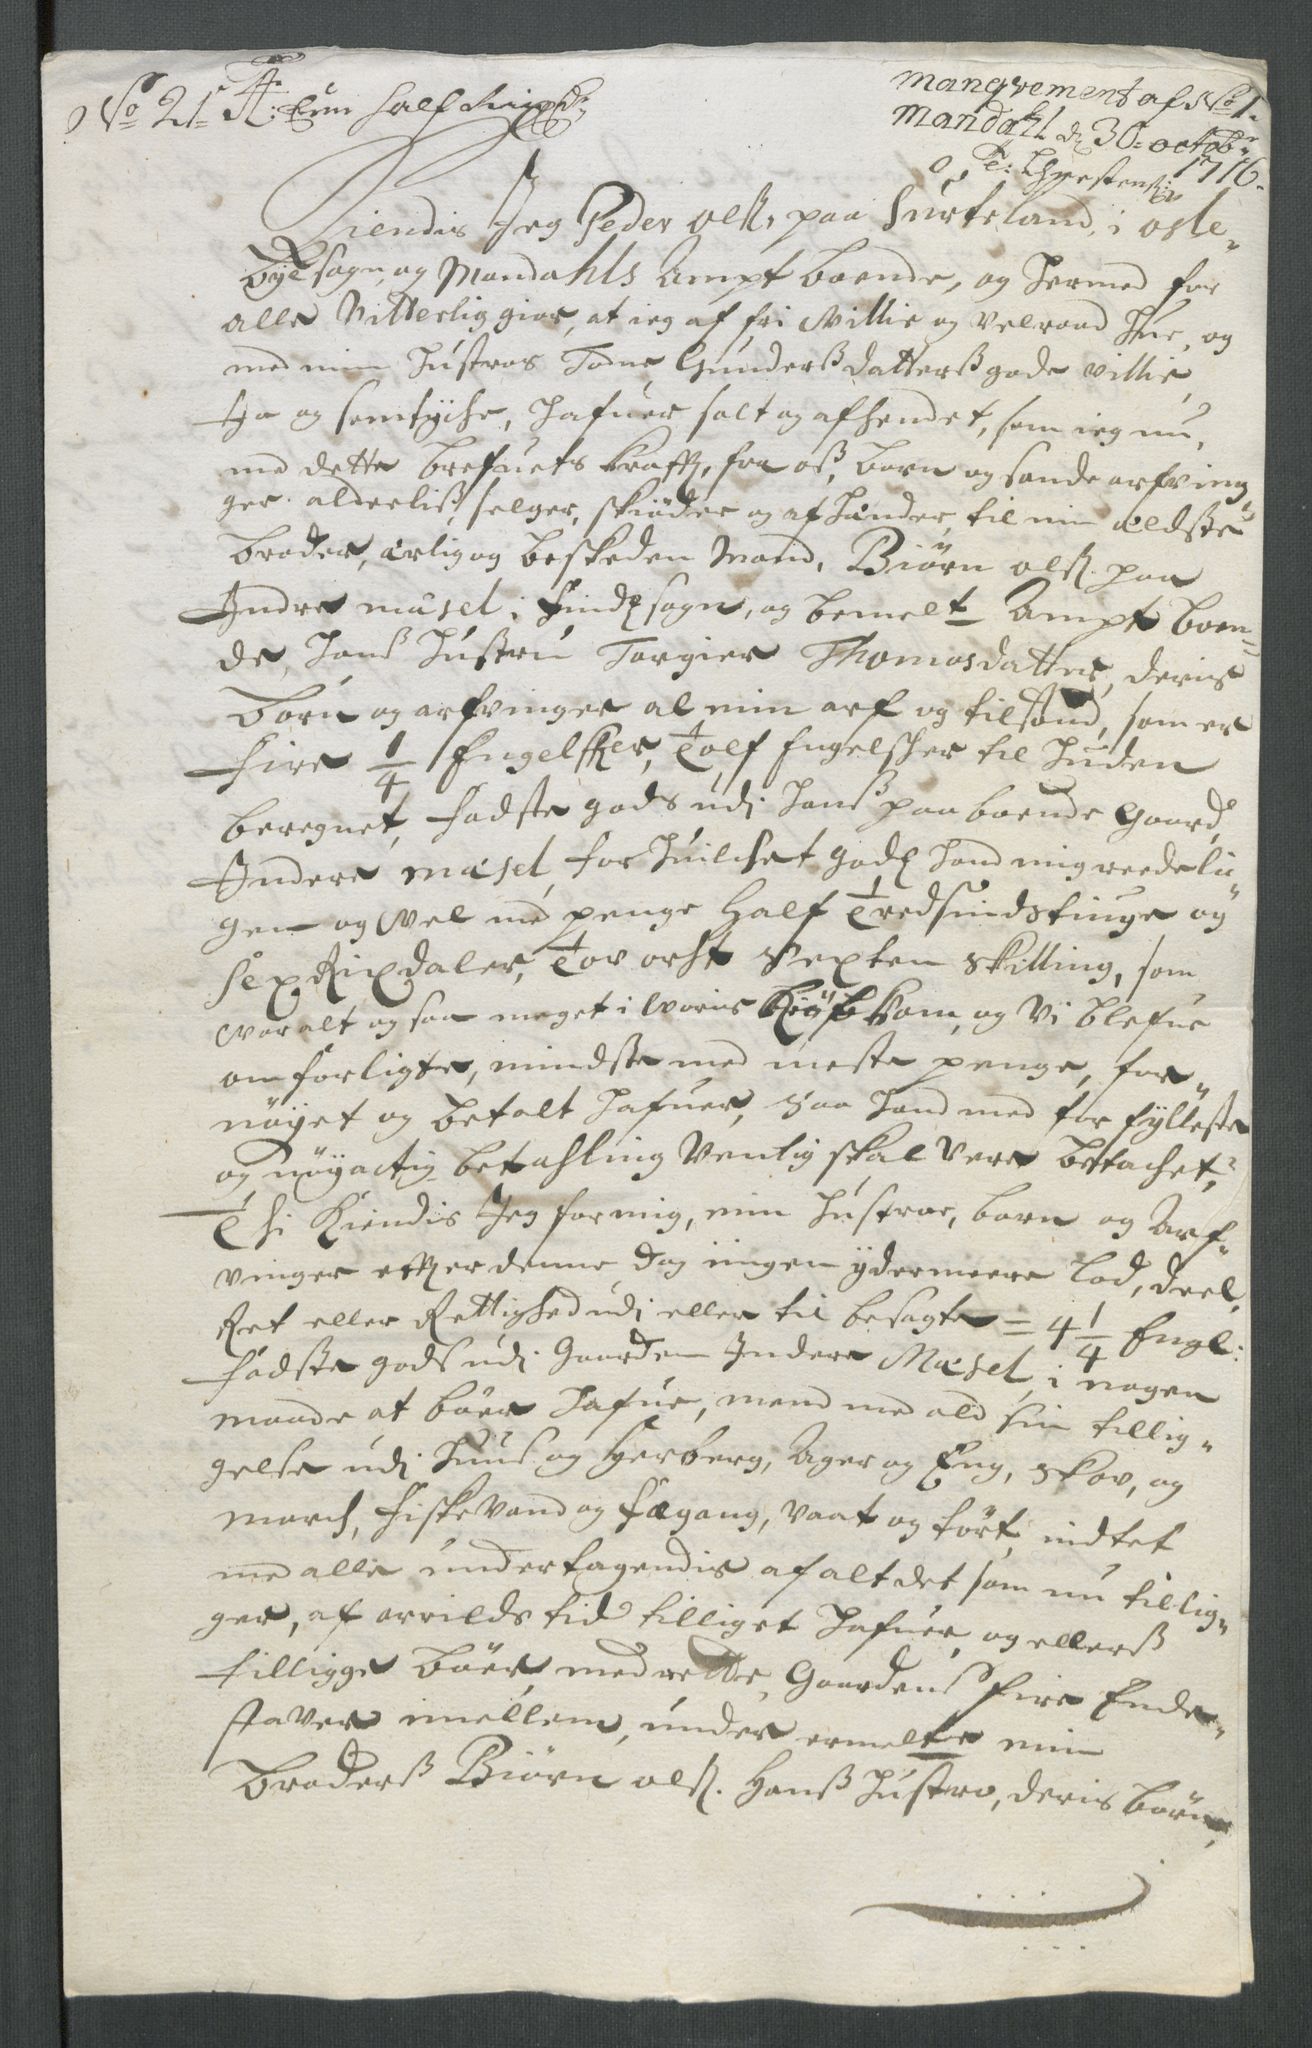 No 21 A: Eun half Rixd:
Manqvement af No 1.
Mandahl d 30: octobr
1716.
T: Christensen
Kiendis Jeg Peder Olß. paa Surteland, i Osle-
bye sogn, og Mandahls Ampt boende, og hermed for
alle Vitterlig giør, at ieg af fri Villie og Velraad Hue, og
med min Hustroes Tone Gundersdatters gode villie,
Ja og samtyche, hafuer solt og afhendet, som ieg nu,
med dette brefuets krafft, fra oß, born og sande arfving
ger alderliß, selger, skiøder og afhænder, til min ældste
broder, ærlig og beskeden Mand, Biørn olß. paa
Indre mæsel i Findß sogn, og bemelte Ampt boen-
de, hans Hustru Torgier Thomasdatter, deris
børn og arfvinger al min arf og tilstand, som er
fire 1/4 Engelsker, Tolf Engelscher til Huden
beregnet, Fadste gods udj hanß paa boende Gaard,
Indere mæsel, for huilchet godß hand mig reedeli-
gen og Vel med penge Half Tredsindstiuge og
Sex Rixdaler, Tov ort Sexten Skilling, som
var alt og saa meget i Woris Kiøb kom, og Vi blefue
om forligte, mindste med meste penge, for-
nøyet og betalt hafuer, Saa hand med for fylleste
og nøyactig betahling Venlig skal Vere betachet,
Thi Kiendis Jeg for mig, min Hustroe, born og Arf-
vinger effter denne dag ingen ydermeere Lod, deel,
Ret eller Rettighed udj eller til besagte = 4 1/4 Engl:
Fadste gods udj Gaarden Indere Mæsel, i nogen
maade at bøer hafue, mend med ald sin tillig-
gelse udj Huus og Herberg, Ager og Eng, Skov, og
march, fiske Vand og Fægang, vaat og tørt, indtet
med alle undertagendis af alt det som nu tillig-
ger, af arrilds tid tilliget hafuer, og ellerß
tilligge bøer, med rette, Gaardens fire Ende-
staver imellem, under ermelte min
Broderß Biørn olß. Hanß Hustro, deris børn,